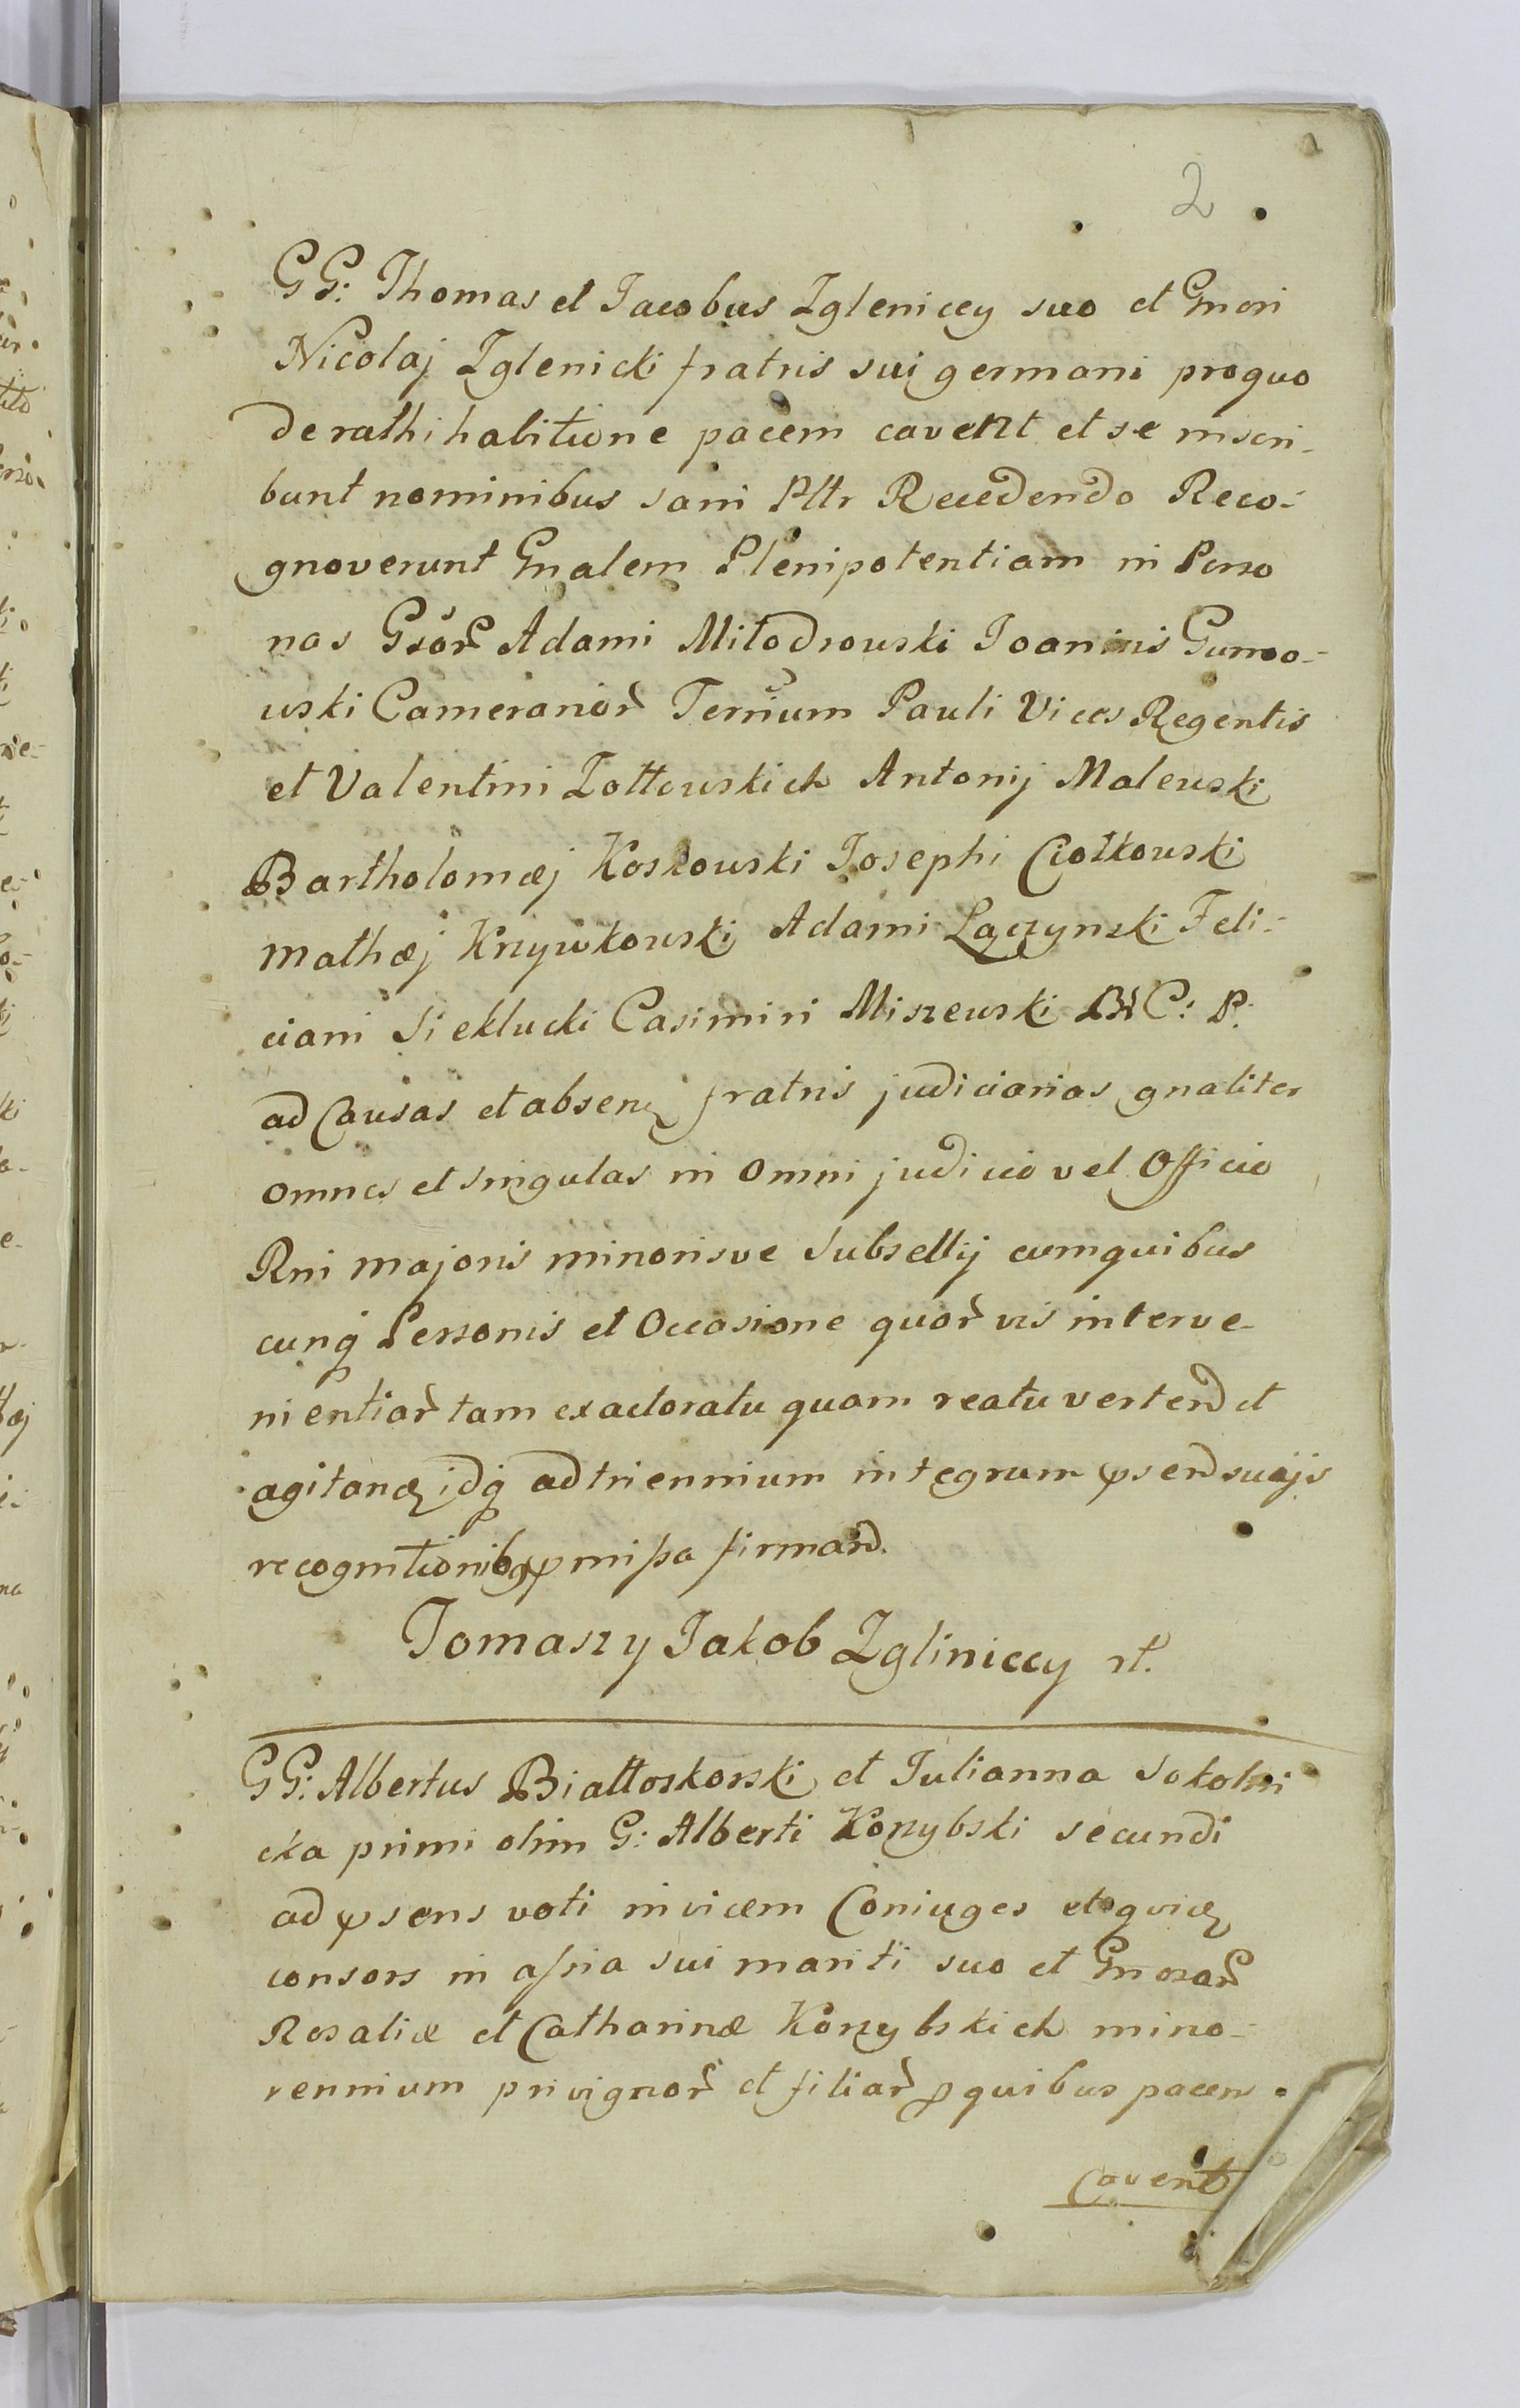 2
GG: Thomas et Jacobus Zgleniccy suo et Gnosi
Nicolaj Zglenicki fratris sui germani pro quo
de rathihabitione pacem cavent et se inscri-
bunt nominibus sani Pltr Recedendo Reco-
gnoverunt Gnalem Plenipotentiam in Perso
nas Gsor Adami Miłodrowski Joannis Gumo-
wski Camerarior Ternium Pauli Vices Regentis
et Valentini Zottowskich Antonij Malewski
Bartholomæj Koskowski Josephi Ciołkowski
Mathæj Krzywkowski Adami Lączynski Feli-
ciani Sieklucki Casimiri Miszewski BrC: P:
ad Causas et absen fratris judiciarias gnaliter
omnes et singulas in omni judicio vel Officio
Rni majoris minorisve Subsellij cum quibus
cunq Personis et Occasione quor vis interve-
nientiar tam ex actoratu quam reatu vertend et
agitand idq ad triennium integrum psend suajs
recognitionibq pmissa firmand.
Tomasz y Jakob Zgliniccy rt.
GG: Albertus Białłoskorski et Julianna Sokolni
cka primi olim G: Alberti Korzybski secundi
ad psens voti invicem Coniuges et
consors in assia sui mariti suo et Gnosar
Rosaliæ et Catharinæ Korzybskich mino-
rennium privignor et filiar p quibus pacem
cavent